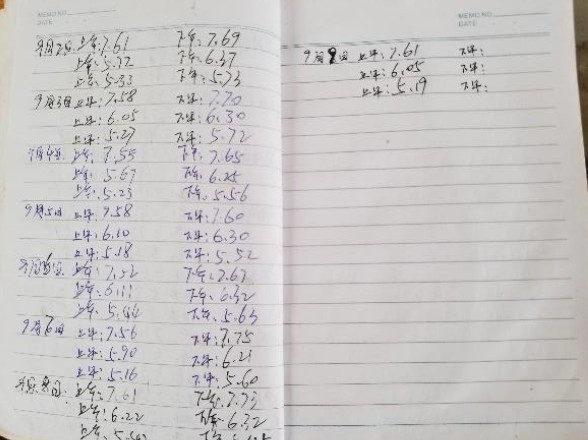 MEMO NO.
DATE
9月2日 上午:7.61 下午:7.69
上午:5.72 下午:6.37
上午:5.33 下午:5.73
9月3日 上午:7.58 下午:7.70
上午:6.05 下午:6.30
上午:5.27 下午:5.72
9月4日 上午:7.55 下午:7.65
上午:5.67 下午:6.25
上午:5.23 下午:5.56
9月5日 上午:7.58 下午:7.60
上午:6.10 下午:6.30
上午:5.18 下午:5.52
上午:7.52 下午:7.67
上午:6.11 下午:6.32
上午: 下午:5.63
上午:7.56 下午:7.75
上午:5.90 下午:6.21
上午:5.16 下午:5.60
上午:7.61 下午:7.73
上午:6.22 下午:6.32
MEMO NO.
DATE
上午:7.61 下午:
上午:6.05 下午:
上午:5.19 下午: